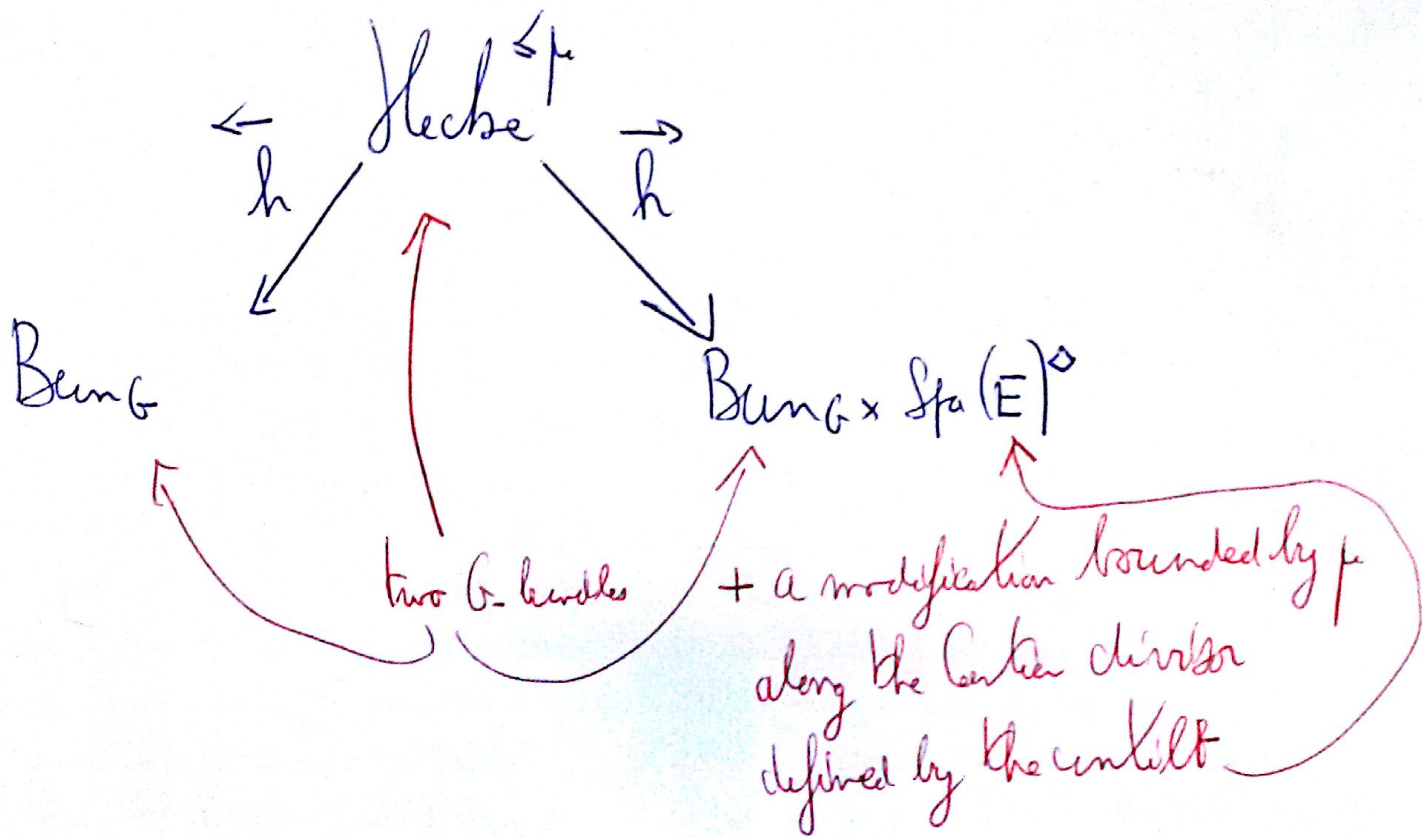 Hecke^{≤μ}
←h →h
Bun_G Bun_G × Spa(E)^◇
two G-bundles + a modification bounded by μ
along the Cartier divisor
defined by the untilt